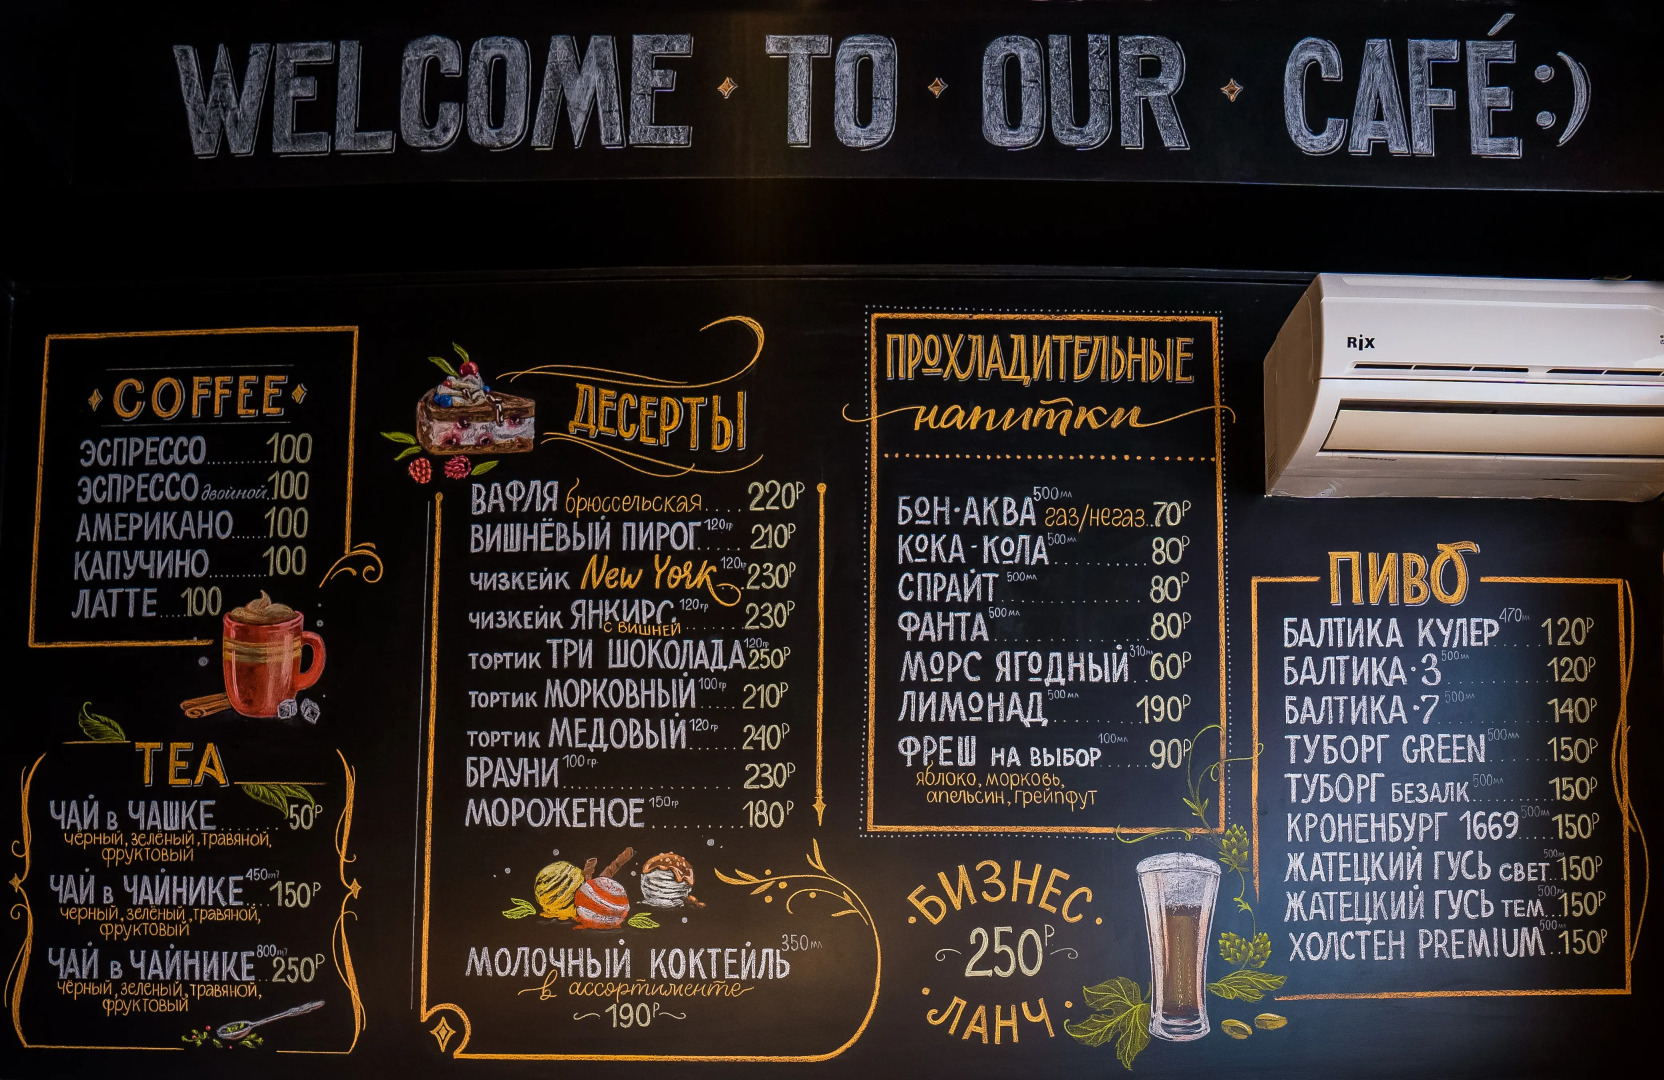 WELCOME TO OUR CAFÉ :)
RIX
COFFEE
ЭСПРЕССО.........100
ЭСПРЕССО двойной.100
АМЕРИКАНО......100
КАПУЧИНО.........100
ЛАТТЕ....100
TEA
ЧАЙ в ЧАШКЕ ..........50Р
чёрный, зелёный, травяной,
фруктовый
ЧАЙ в ЧАЙНИКЕ 450мл....150Р
черный, зелёный, травяной,
фруктовый
ЧАЙ в ЧАЙНИКЕ 800мл..250Р
чёрный, зеленый, травяной,
фруктовый
ДЕСЕРТЫ
ВАФЛЯ брюссельская.....220Р
ВИШНЁВЫЙ ПИРОГ 120гр.....210Р
ЧИЗКЕЙК New York 120гр.230Р
ЧИЗКЕЙК ЯНКИРС 120гр........230Р
С ВИШНЕЙ
ТОРТИК ТРИ ШОКОЛАДА 120гр 250Р
ТОРТИК МОРКОВНЫЙ 100гр..210Р
ТОРТИК МЕДОВЫЙ 120гр...240Р
БРАУНИ 100гр..................230Р
МОРОЖЕНОЕ 150гр.........180Р
МОЛОЧНЫЙ КОКТЕЙЛЬ 350мл
в ассортименте
190Р
ПРОХЛАДИТЕЛЬНЫЕ
напитки
БОН-АКВА 500мл газ/негаз..70Р
КОКА-КОЛА 500мл............80Р
СПРАЙТ 500мл..................80Р
ФАНТА 500мл....................80Р
МОРС ЯГОДНЫЙ 310мл..60Р
ЛИМОНАД 500мл...........190Р
ФРЕШ НА ВЫБОР 100мл......90Р
яблоко, морковь,
апельсин, грейпфут
БИЗНЕС
250Р
ЛАНЧ
ПИВО
БАЛТИКА КУЛЕР 470мл.....120Р
БАЛТИКА·3 500мл............120Р
БАЛТИКА·7 500мл...........140Р
ТУБОРГ GREEN 500мл......150Р
ТУБОРГ БЕЗАЛК 500мл.......150Р
КРОНЕНБУРГ 1669 500мл..150Р
ЖАТЕЦКИЙ ГУСЬ СВЕТ 500мл.150Р
ЖАТЕЦКИЙ ГУСЬ ТЕМ 500мл..150Р
ХОЛСТЕН PREMIUM 500мл..150Р